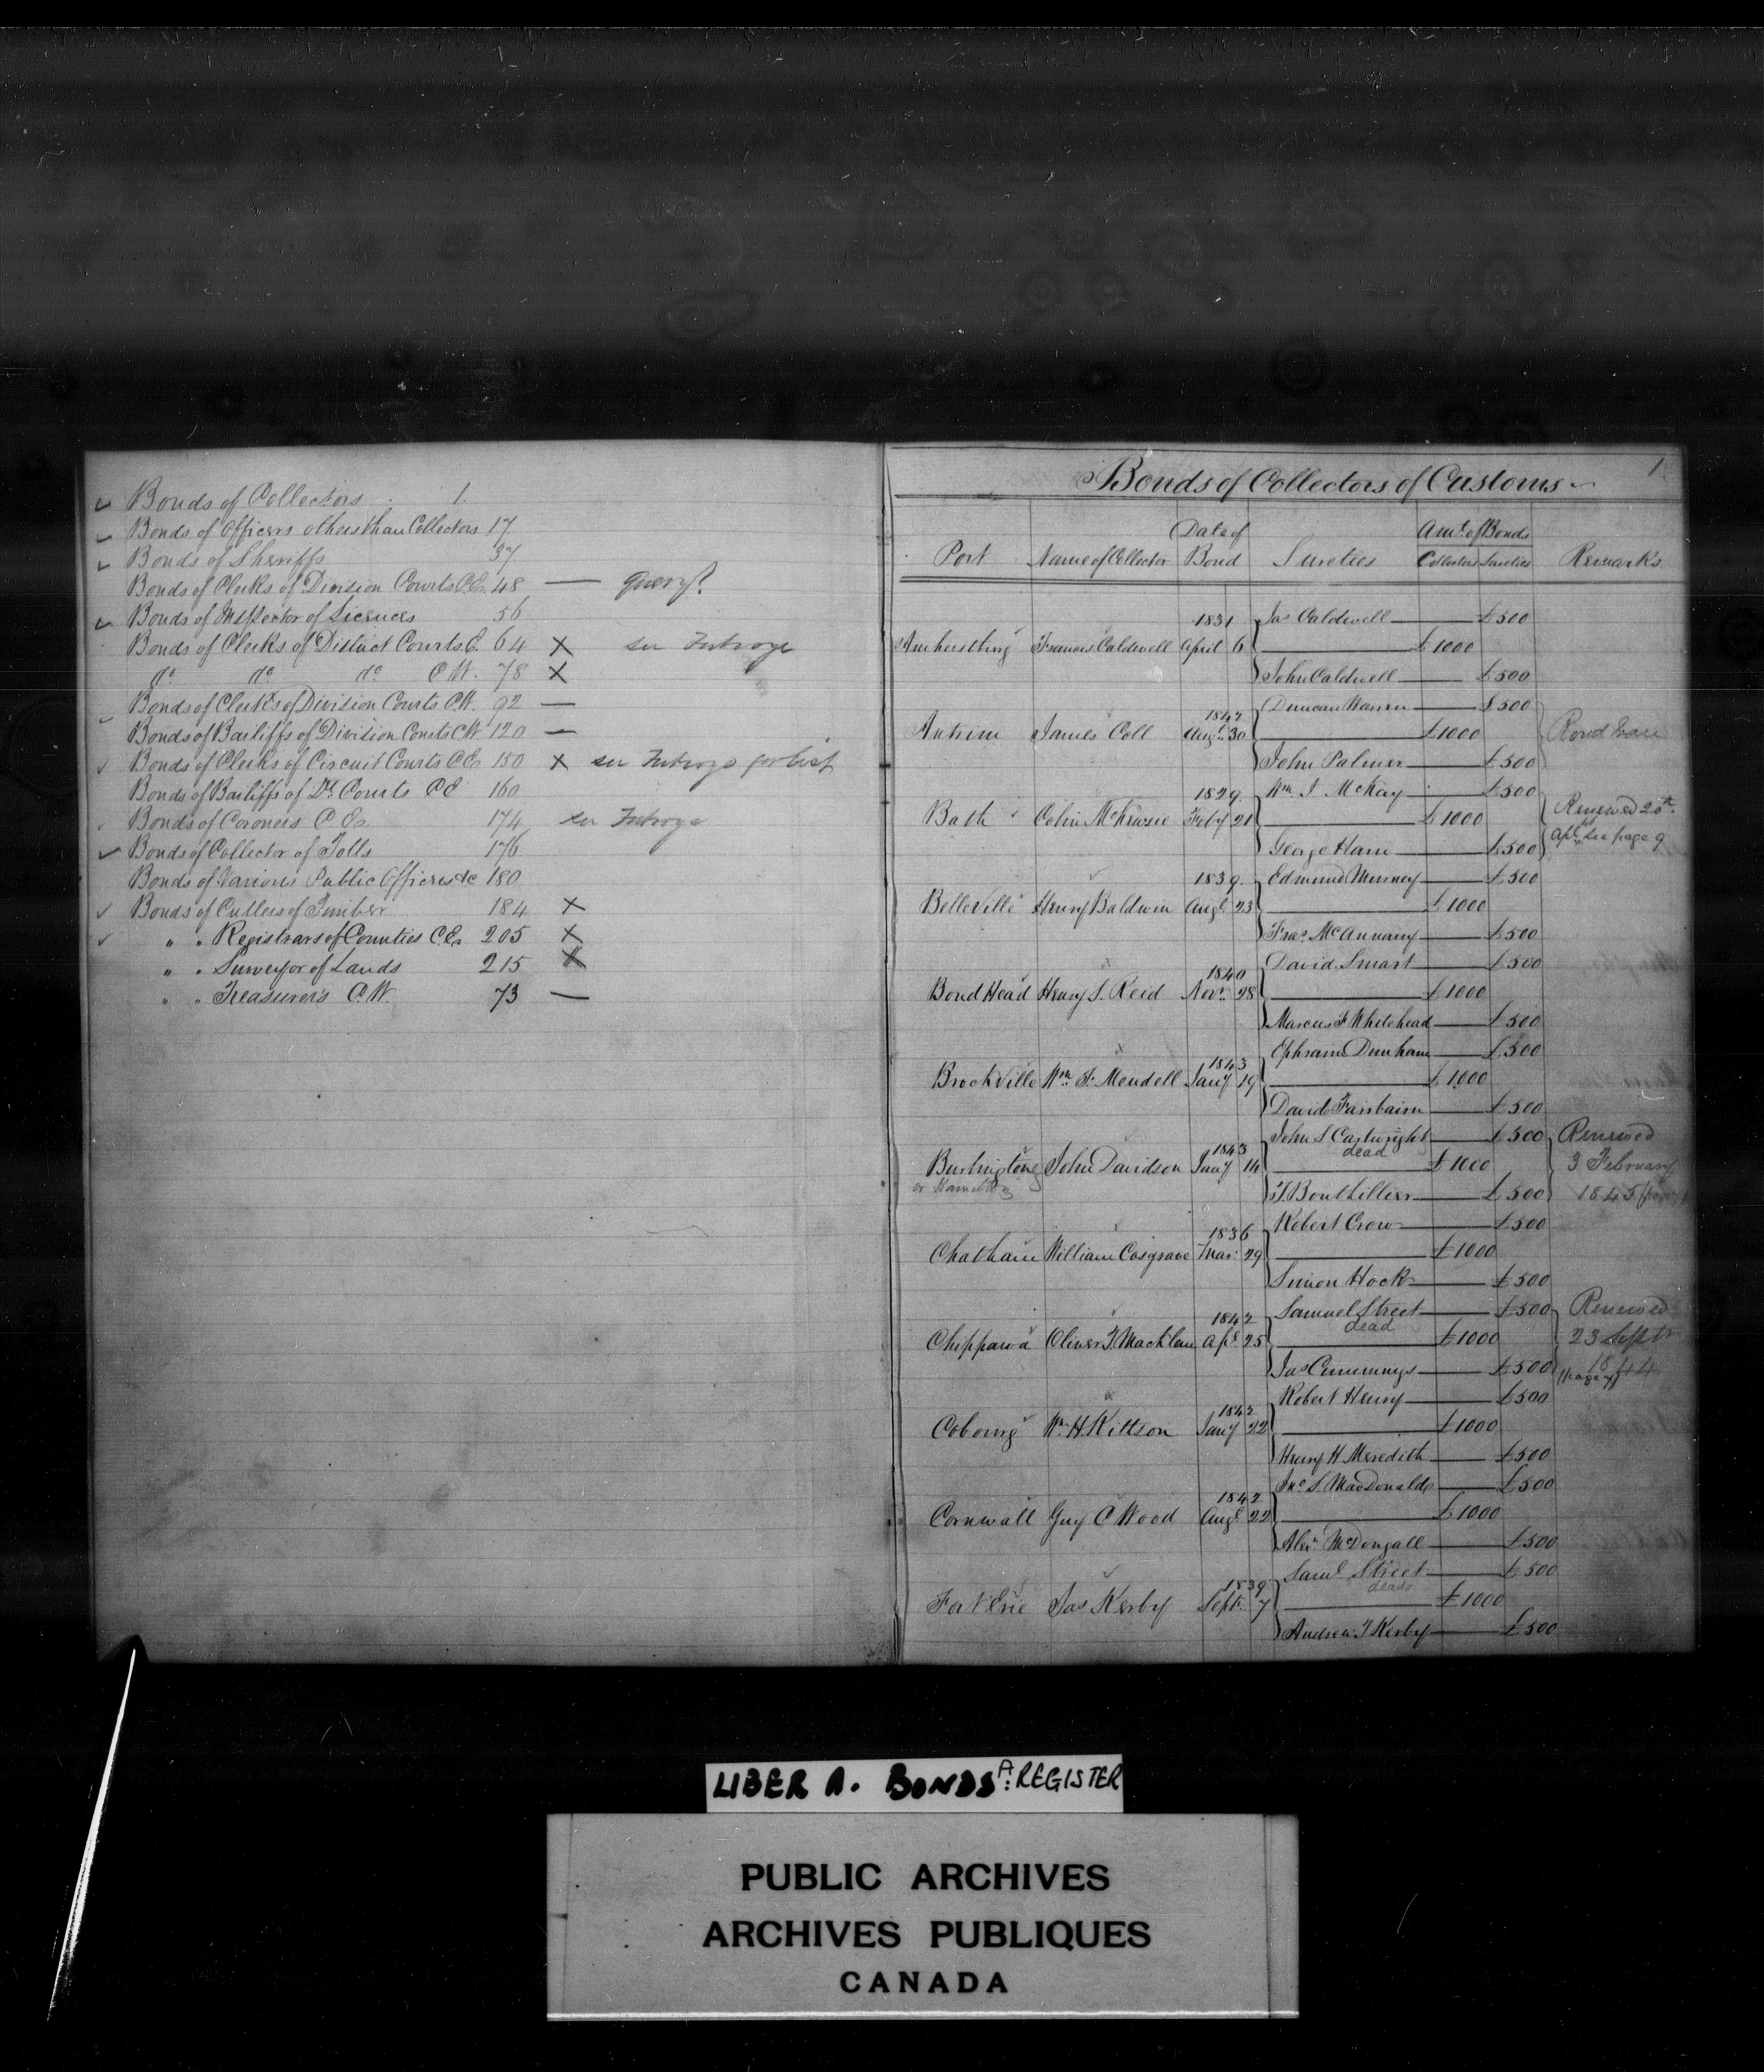 Bonds of Collectors . 1.
Bonds of Officers other than Collectors 17
Bonds of Sheriffs 37
Bonds of Clerks of Division Courts C.E. 48 — query?
Bonds of Inspector of Licences 56
Bonds of Clerks of District Courts C.E. 64 X see
do do do C.W. 78 X
Bonds of Clerks of Division Courts C.W. 92 —
Bonds of Bailiffs of Division Courts C.W. 120 —
Bonds of Clerks of Circuit Courts C.E. 150 X see for list
Bonds of Bailiffs of Dt. Courts C.E. 160
Bonds of Coroners C.E. 174 see
Bonds of Collector of Tolls 176
Bonds of Various Public Officers &c 180
Bonds of Cullers of Timber 184 X
" " Registrars of Counties C.E. 205 X
" " Surveyor of Lands 215 X
" " Treasurers C.W. 73 —
1
Bonds of Collectors of Customs
Date of Amt. of Bonds
Port Name of Collector Bond Sureties Collectors Sureties Remarks
1831 Jas Caldwell £500
Amherstburg Francis Caldwell April 6 £1000
John Caldwell £500
1842 Duncan Warren £500
Antrim James Coll Augt. 30 £1000
John Palmer £500
1829 Wm. I McKay £500
Bath Colin McKenzie Feby 21 £1000 Renewed 20th
George Ham £500 Apl. see page 9
1839 Edmund Murney £500
Belleville Henry Baldwin Augt 23 £1000
Fras. McAnnany £500
1840 David Smart £500
Bond Head Henry S. Reid Novr. 28 £1000
Marcus F Whitehead £500
1843 Ephraim Dunham £500
Brockville Wm. F. Mendell Jany 19 £1000
David Fairbairn £500
1843 John S Cartwright £500 Renewed
dead
Burlington John Davidson Jany 14 £1000 3 February
or Hamilton T. Bouthillier £500 1845 (page
1836 Robert Crow £500
Chatham William Cosgrave Mar. 29 £1000
Simon Hock £500
1842 Samuel Street £500 Renewed
dead
Chippawa Oliver T. Macklem Apl. 25 £1000 23 Septr
Jas Cummings £500 1844
1842 Robert Henry £500
Cobourg Wm. H. Kittson Jany 22 £1000
Henry H. Meredith £500
1842 Jno. S MacDonald £500
Cornwall Guy C Wood Augt 22 £1000
Alexr. McDougall £500
1839 Saml Street £500
dead
Fort Erie Jas Kerby Sept. 7 £1000
Andrew T Kerby £500
LIBER A. BONDS A: REGISTER
PUBLIC ARCHIVES
ARCHIVES PUBLIQUES
CANADA